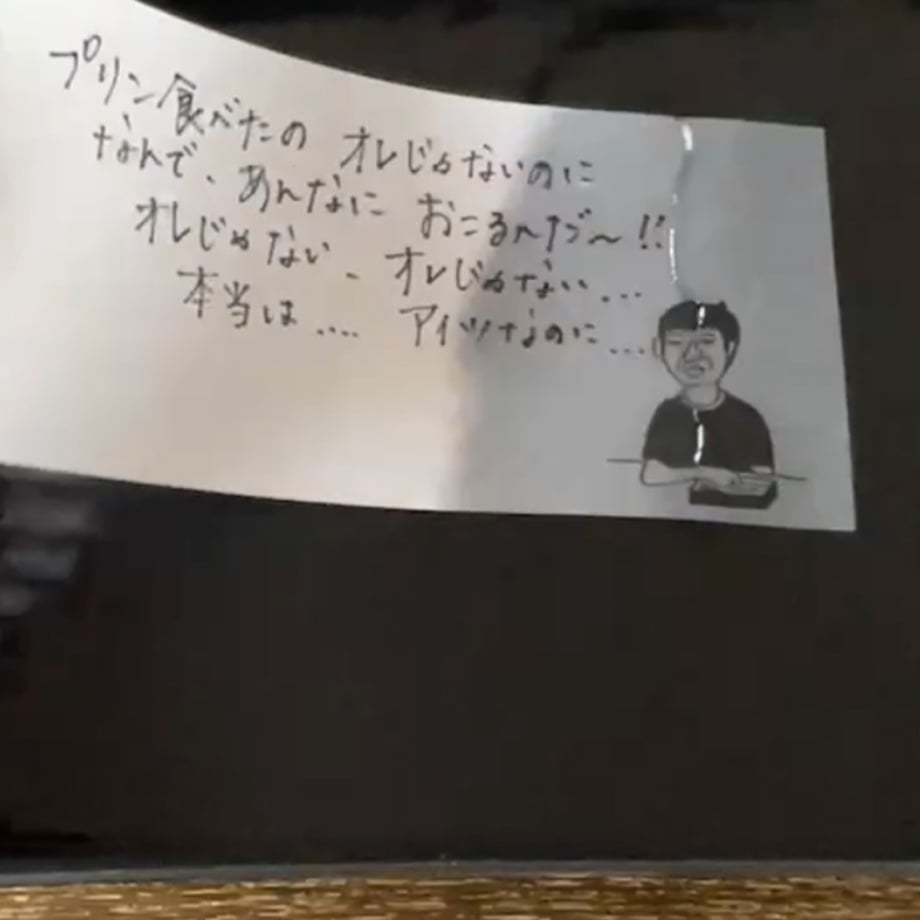 プリン食べたの オレじゃないのに
なんで、あんなに おこるんだ〜!!
オレじゃない、オレじゃない...
本当は.... アイツなのに...